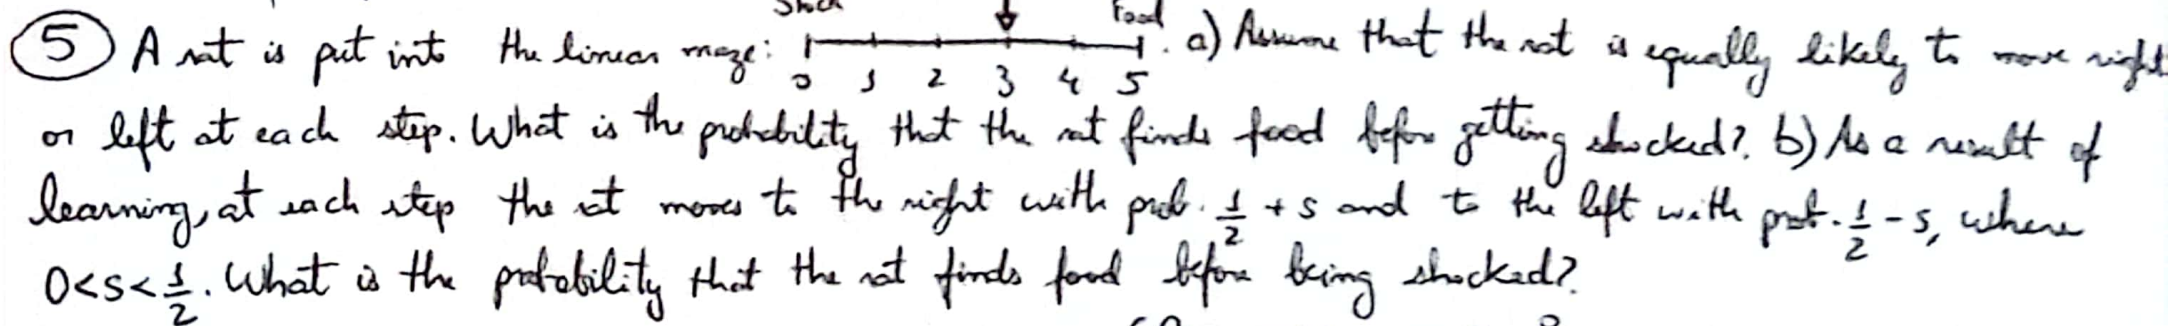 Shock Food
⑤ A rat is put into the linear maze: . a) Assume that the rat is equally likely to move right
0 1 2 3 4 5
or left at each step. What is the probability that the rat finds food before getting shocked?. b) As a result of
learning, at each step the rat moves to the right with prob. 1/2 + s and to the left with prob. 1/2 - s, where
0<s<1/2. What is the probability that the rat finds food before being shocked?